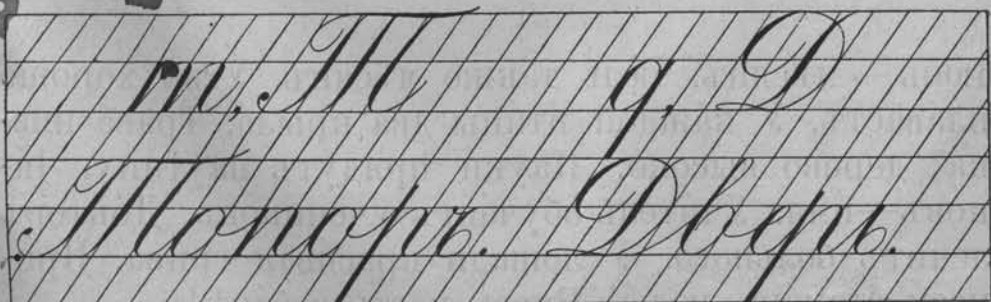 т, Т д, Д
Топоръ. Дверь.